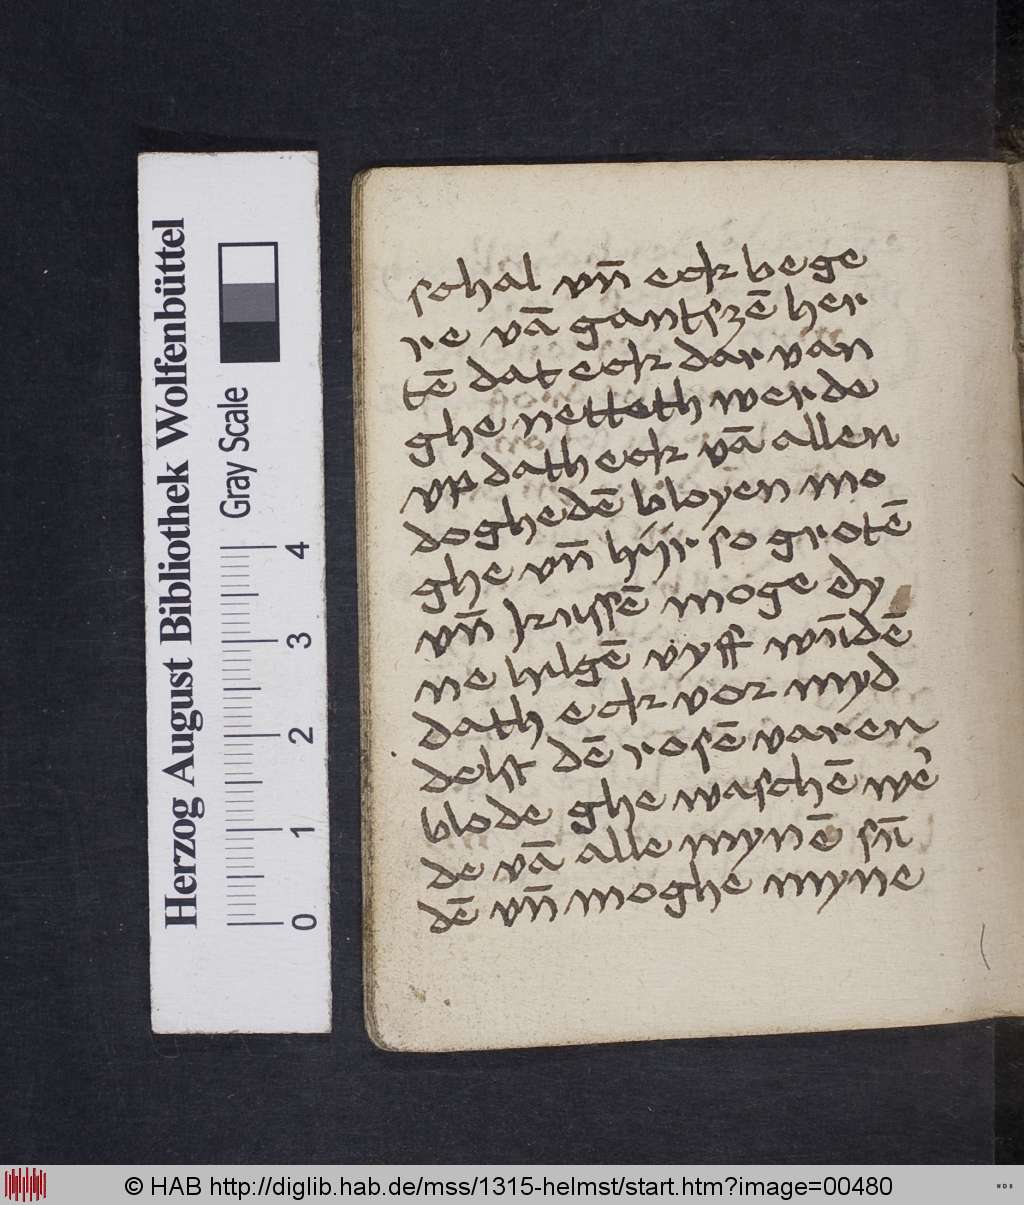 schal vn̄ eck bege
re vā gantszē her
tē dat eck dar van
ghe netteth werde
vp dath eck vā allen
doghedē bloyen mo
ghe vn̄ hijr so grotē
vn̄ kussē moge dy
ne hilgē vyff wn̄dē
dath eck vor myd
delst dē rosē varen
blode ghe waschē we
de vā alle mynē sn̄
dē vn̄ moghe myne
Herzog August Bibliothek Wolfenbüttel
Gray Scale
0 1 2 3 4
© HAB http://diglib.hab.de/mss/1315-helmst/start.htm?image=00480